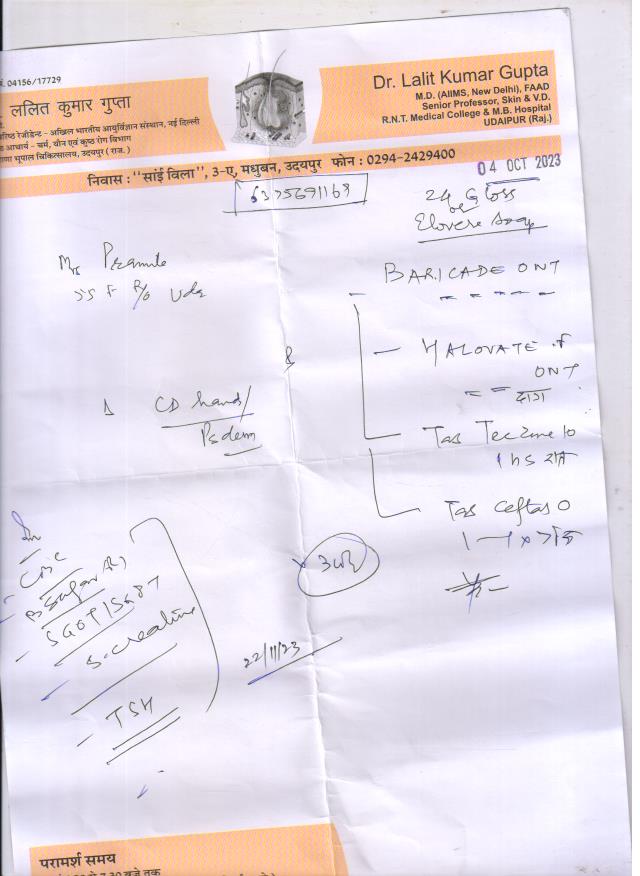 04156/17729
ललित कुमार गुप्ता
रेजीडेन्ट - अखिल भारतीय आयुर्विज्ञान संस्थान, नई दिल्ली
आचार्य - चर्म, यौन एवं कुष्ठ रोग विभाग
भूपाल चिकित्सालय, उदयपुर ( राज. )
Dr. Lalit Kumar Gupta
M.D. (AIIMS, New Delhi), FAAD
Senior Professor, Skin & V.D.
R.N.T. Medical College & M.B. Hospital
UDAIPUR (Raj.)
निवास : "सांई विला", 3-ए, मधुबन, उदयपुर फोन : 0294-2429400
04 OCT 2023
6375691168
Elovera
Mrs Pramila
55 F R/o Uda
BARICADE ONT
HALOVATE F
ONT
CD hand/
Tab Teczine 10
1 HS रात
Tab Ceftas O
CBC
B Sugar (R)
SGOT/SGPT
S. creatine
TSH
22/11/23
परामर्श समय